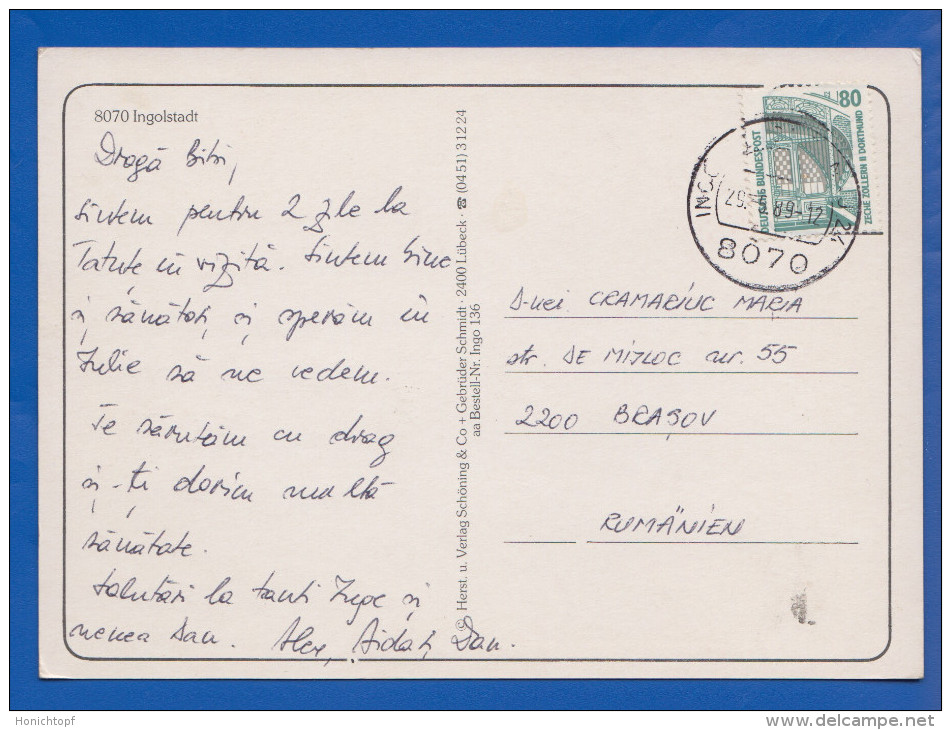 8070 Ingolstadt
Dragă Bibi,
Sîntem pentru 2 zile la
Tatuțe în vizită. Sîntem bine
și sănătoși și sperăm în
Iulie să ne vedem.
Te sărutăm cu drag
și-ți dorim multă
sănătate.
Salutări la tanti Inge și
nenea Dan. Alex, Aida și Dan.
© Herst. u. Verlag Schöning & Co + Gebrüder Schmidt · 2400 Lübeck · ☎ (04 51) 3 12 24
aa Bestell-Nr. Ingo 136
80
DEUTSCHE BUNDESPOST
ZECHE ZOLLERN II DORTMUND
8070
D-nei CRAMARIUC MARIA
str. DE MIJLOC nr. 55
2200 BRAȘOV
RUMÄNIEN
Honichtopf
www.delcampe.net